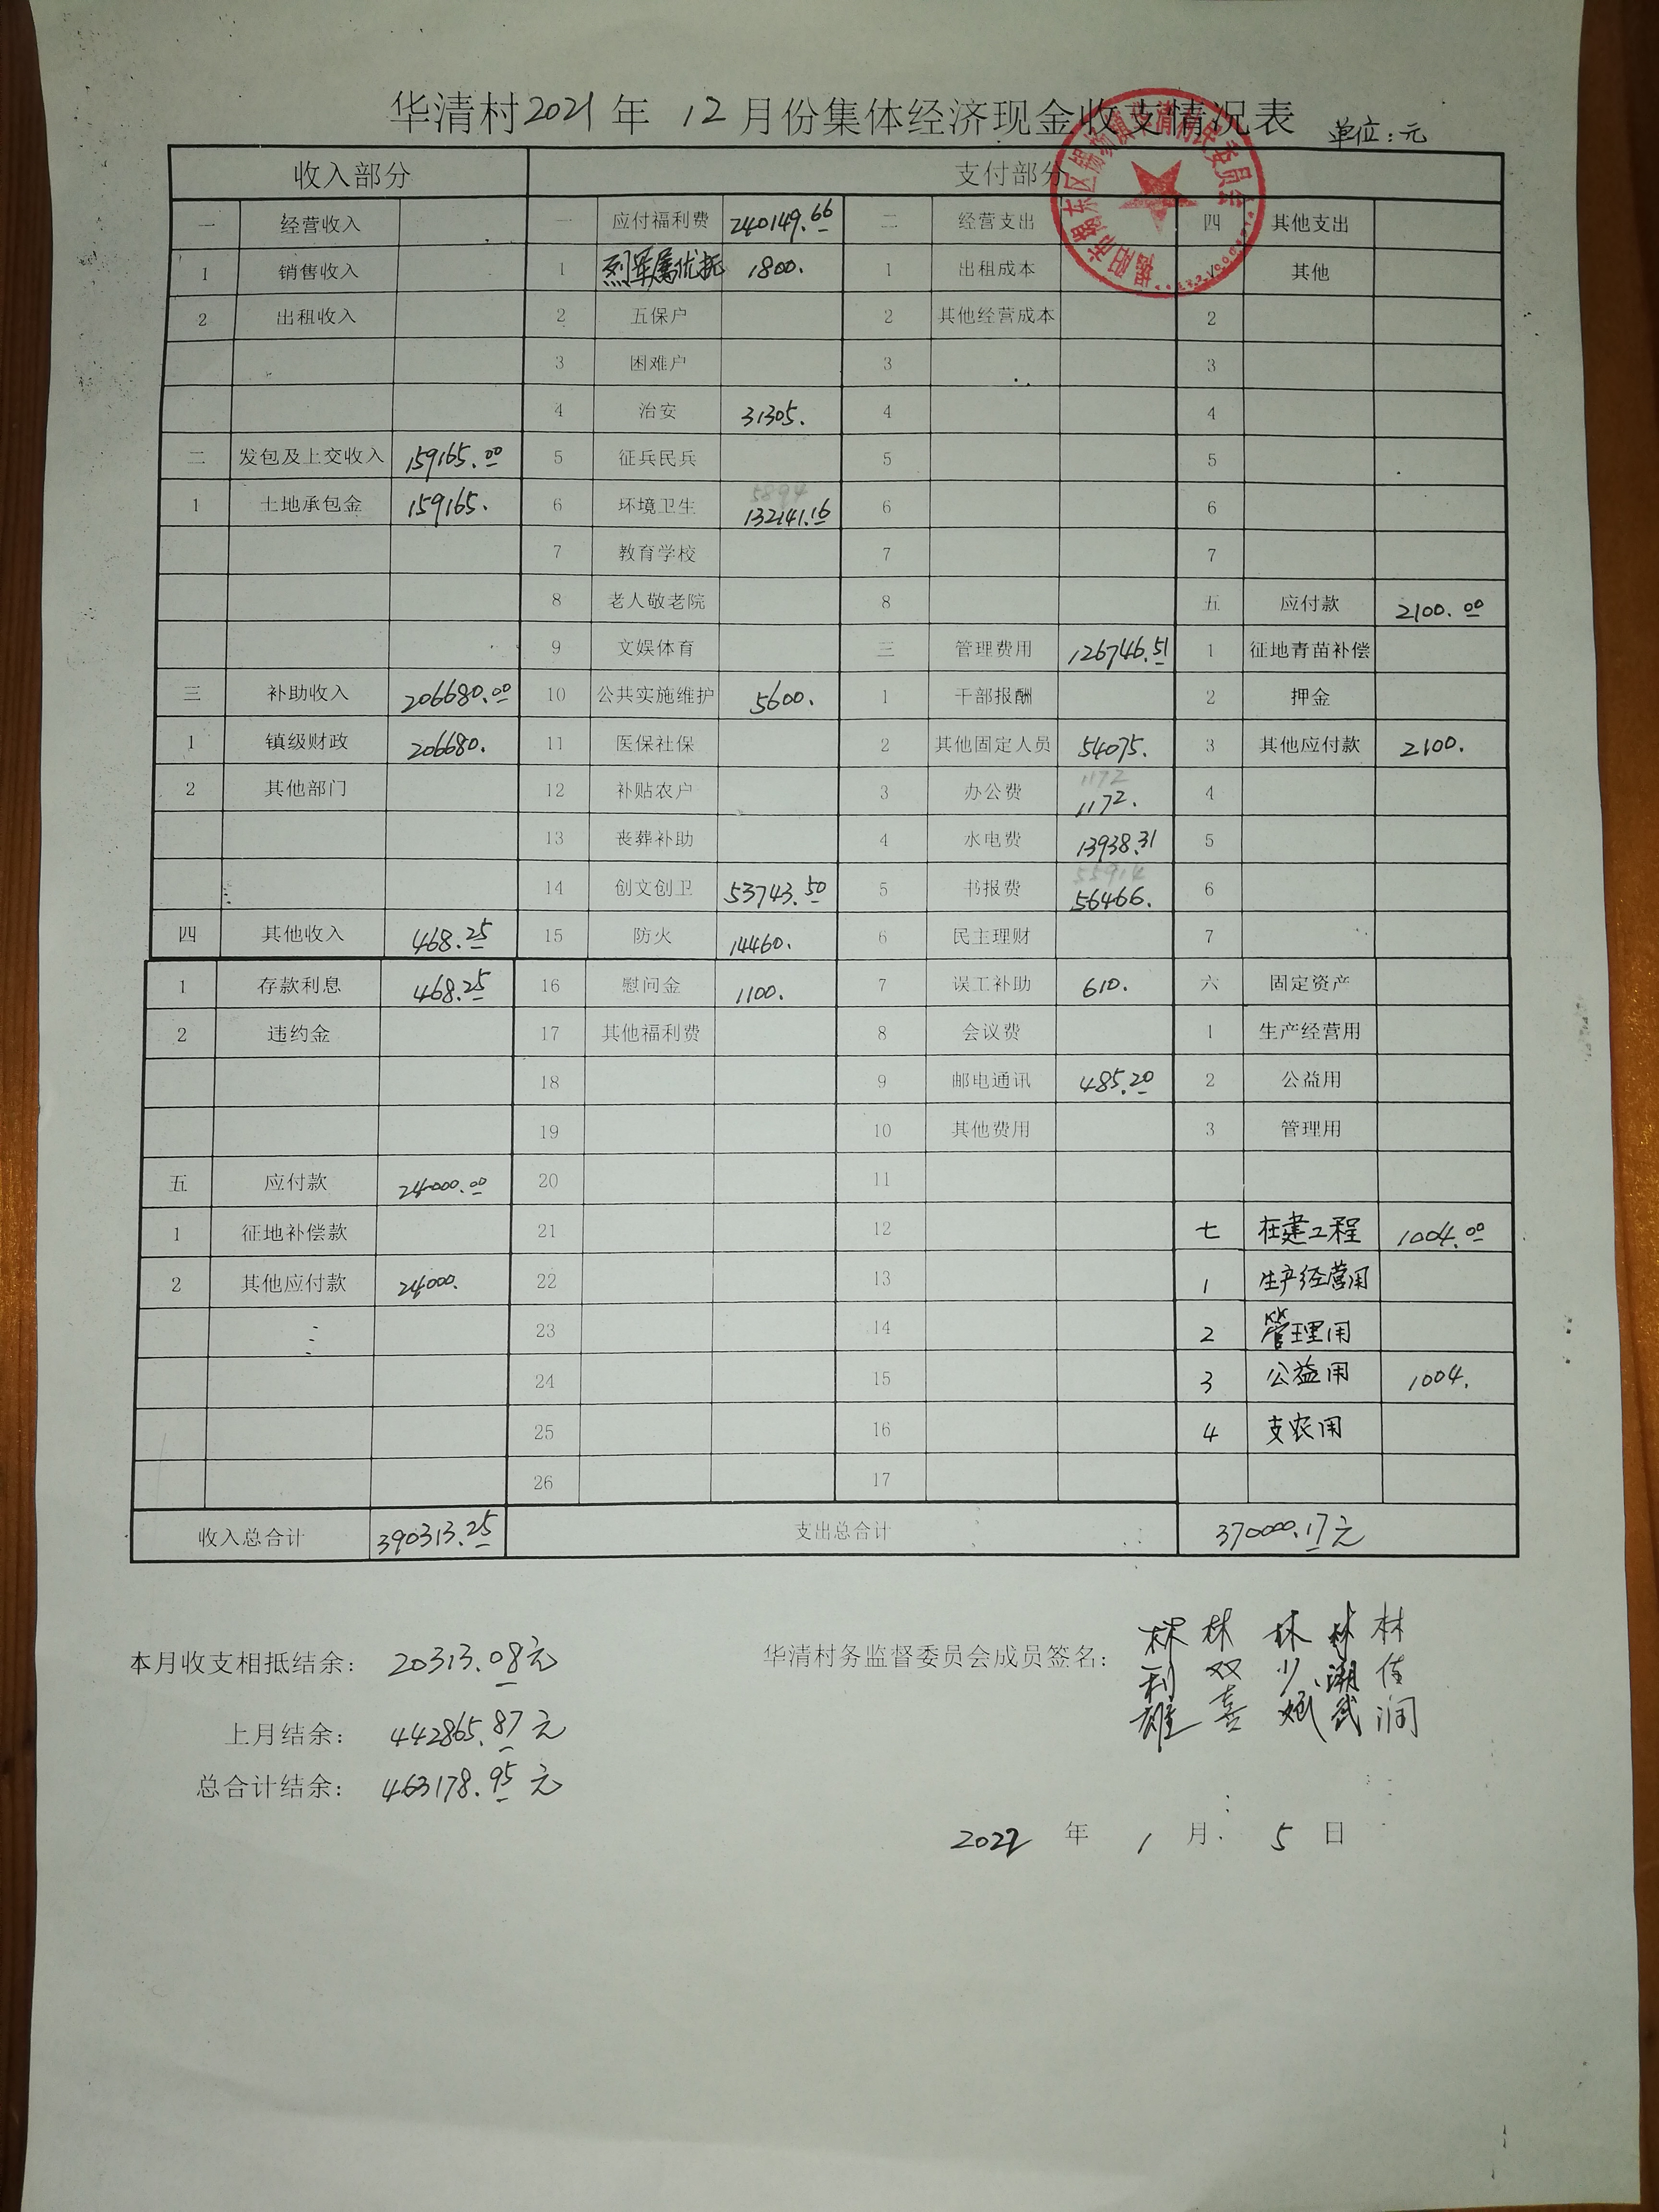 华清村2021年 12月份集体经济现金收支情况表
单位:元
收入部分 支付部分
一 经营收入 一 应付福利费 240149.66 二 经营支出 四 其他支出
1 销售收入 1 烈军属优抚 1800. 1 出租成本 其他
2 出租收入 2 五保户 2 其他经营成本 2
3 困难户 3 3
4 治安 31305. 4 4
二 发包及上交收入 159165.00 5 征兵民兵 5 5
1 土地承包金 159165. 6 环境卫生 5894 132141.16 6 6
7 教育学校 7 7
8 老人敬老院 8 五 应付款 2100.00
9 文娱体育 三 管理费用 126746.51 1 征地青苗补偿
三 补助收入 206680.00 10 公共实施维护 5600. 1 干部报酬 2 押金
1 镇级财政 206680. 11 医保社保 2 其他固定人员 54075. 3 其他应付款 2100.
2 其他部门 12 补贴农户 3 办公费 1172 1172. 4
13 丧葬补助 4 水电费 13938.31 5
14 创文创卫 53743.50 5 书报费 55914 56466. 6
四 其他收入 468.25 15 防火 14460. 6 民主理财 7
1 存款利息 468.25 16 慰问金 1100. 7 误工补助 610. 六 固定资产
2 违约金 17 其他福利费 8 会议费 1 生产经营用
18 9 邮电通讯 485.20 2 公益用
19 10 其他费用 3 管理用
五 应付款 24000.00 20 11
1 征地补偿款 21 12 七 在建工程 1004.00
2 其他应付款 24000. 22 13 1 生产经营用
23 14 2 管理用
24 15 3 公益用 1004.
25 16 4 支农用
26 17
收入总合计 390313.25 支出总合计 370000.17元
本月收支相抵结余: 20313.08元
华清村务监督委员会成员签名: 林利雄 林双喜 林少斌 林潮武 林佳润
上月结余: 442865.87元
总合计结余: 463178.95元
2022 年 1 月 5 日